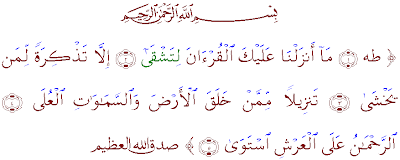 بِسْمِ ٱللَّهِ ٱلرَّحْمَٰنِ ٱلرَّحِيمِ
﴿ طه ۝١ مَآ أَنزَلْنَا عَلَيْكَ ٱلْقُرْءَانَ لِتَشْقَىٰٓ ۝٢ إِلَّا تَذْكِرَةً لِّمَن
يَخْشَىٰ ۝٣ تَنزِيلًا مِّمَّنْ خَلَقَ ٱلْأَرْضَ وَٱلسَّمَٰوَٰتِ ٱلْعُلَى ۝٤
ٱلرَّحْمَٰنُ عَلَى ٱلْعَرْشِ ٱسْتَوَىٰ ۝٥ ﴾ صدق الله العظيم